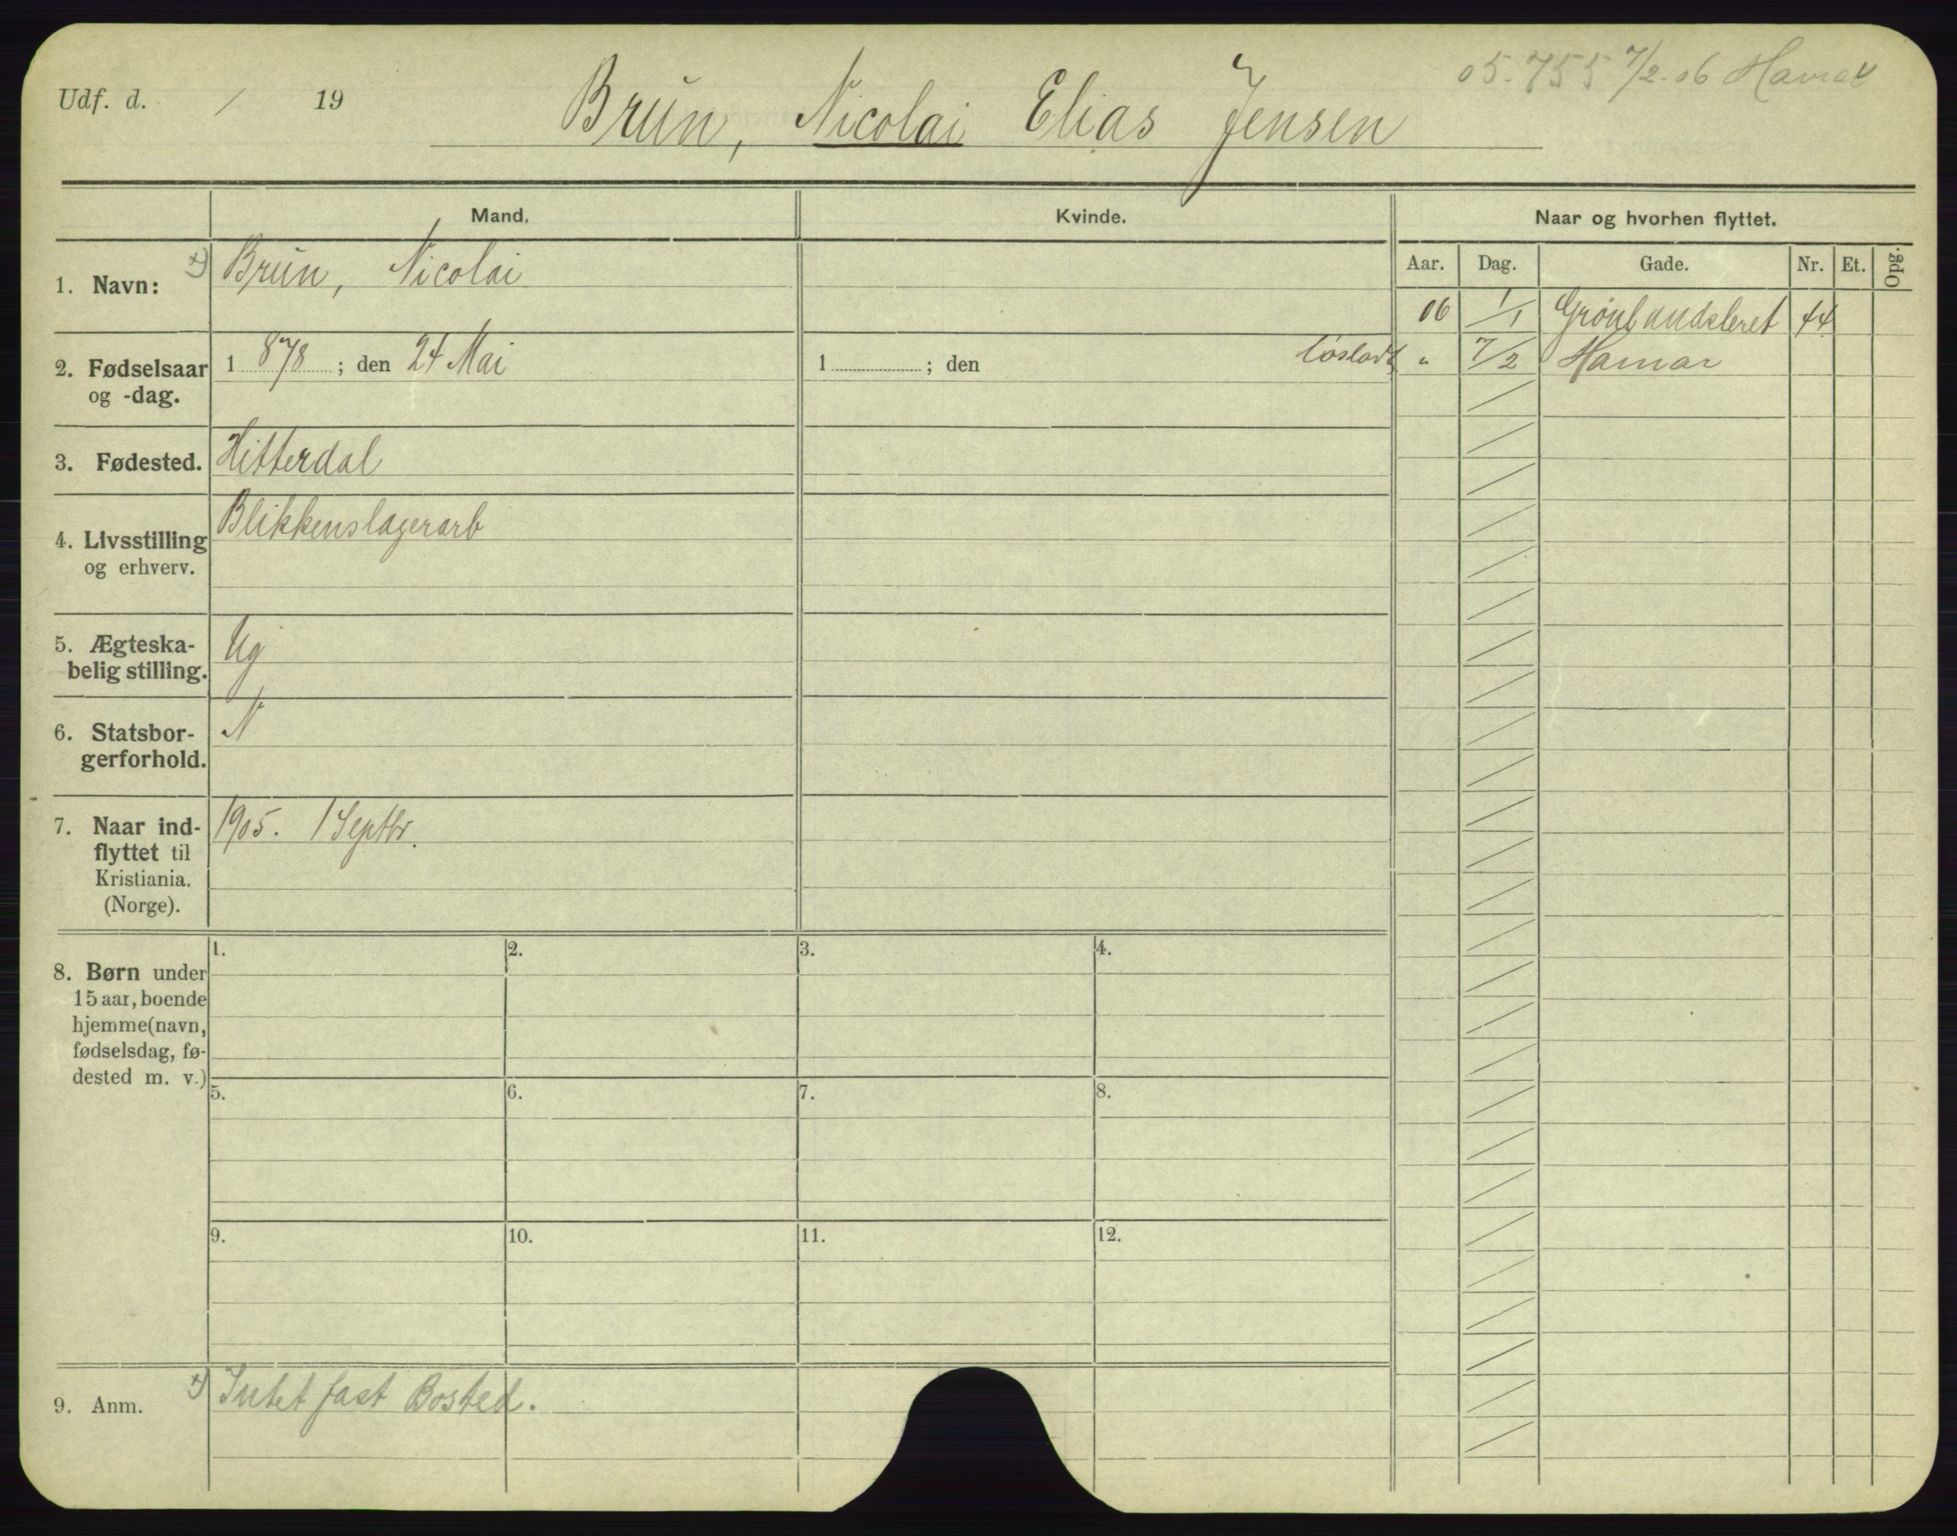 05-755 7/2-06 Hamar
Udf. d. / 19
Brun, Nicolai Elias Jensen
Mand. Kvinde. Naar og hvorhen flyttet.
Aar. Dag. Gade. Nr. Et. Opg.
1. Navn: x) Brun, Nicolai
06 1/1 Grønlandsleret 44
2. Fødselsaar og -dag. 1 878 ; den 24 Mai 1 ; den
" 7/2 Hamar
3. Fødested. Hitterdal
4. Livsstilling og erhverv. Blikkenslagerarb
5. Ægteska-
belig stilling. Ug
6. Statsbor-
gerforhold. N
7. Naar ind-
flyttet til
Kristiania.
(Norge). 1905. 1 Septbr.
8. Børn under
15 aar, boende
hjemme (navn,
fødselsdag, fø-
dested m. v.)
1. 2. 3. 4.
5. 6. 7. 8.
9. 10. 11. 12.
9. Anm. x) Intet fast Bosted.